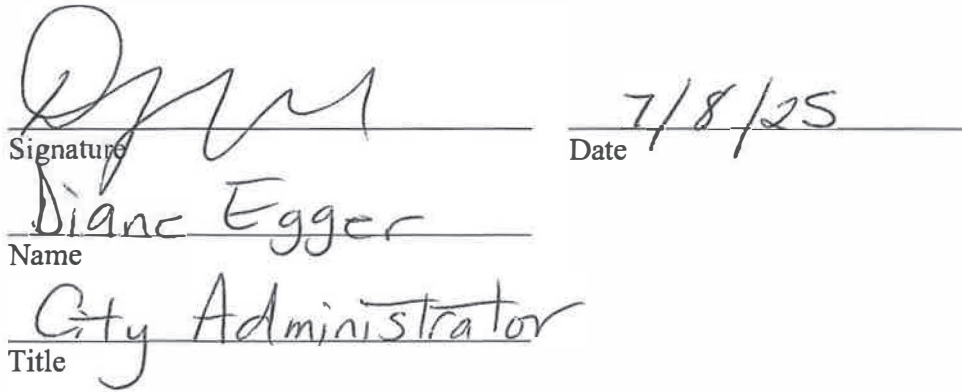 7/8/25
Signature Date
Diane Egger
Name
City Administrator
Title